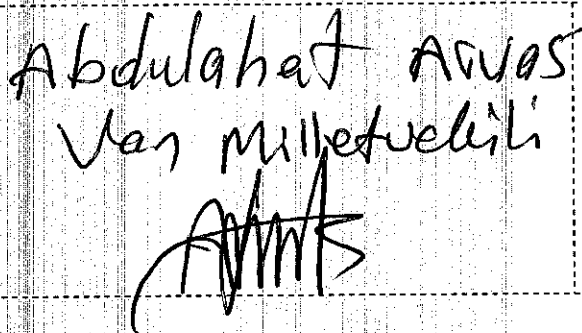 Abdulahat Arvas
Van Milletvekili